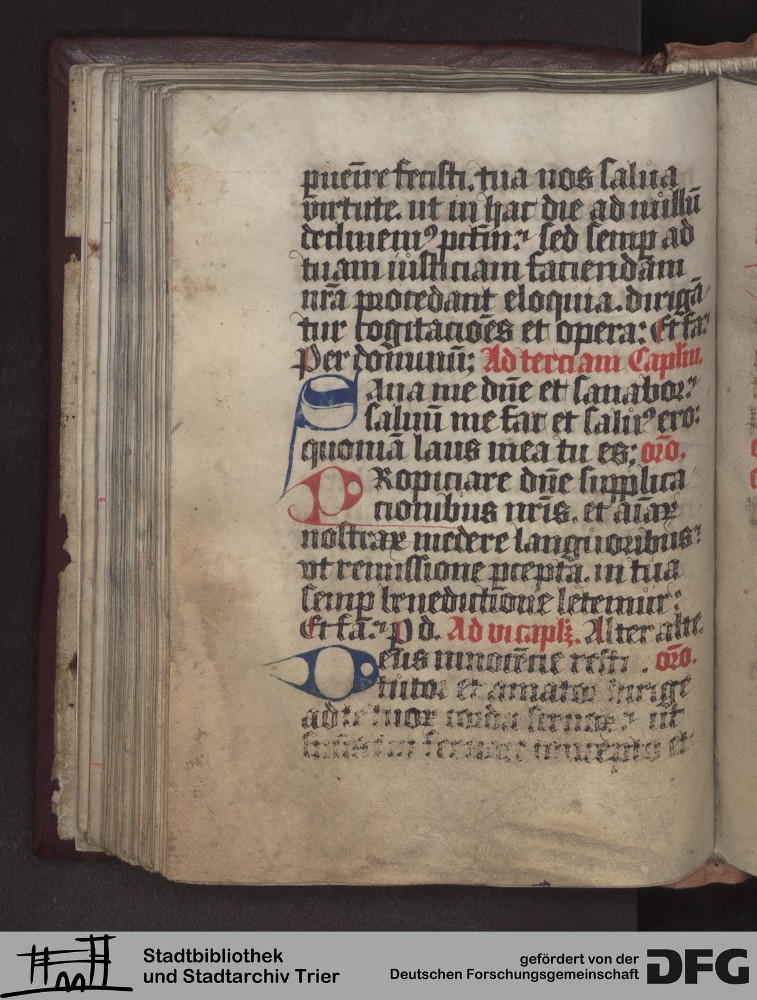 puenire fecisti. tua nos salua
virtute. ut in hac die ad nullū
declinemꝰ pctm̄: sed semp ad
tuam iusticiam faciendam
nrā procedant eloquia. dirigā
tur cogitacōēs et opera: Et fa:
Per dominū; Ad terciam Caplm.
Sana me dn̄e et sanabor:
saluū me fac et saluꝰ ero:
quoniā laus mea tu es; orō.
PRopiciare dn̄e supplica
cionibus nr̄is. et aīaꝝ
nostraꝝ medere languoribus:
vt remissione ꝑcepta. in tua
semp benedictione letemur:
Et fa: P d. Ad vi capl̄. Alter alte.
Deus innocēcie resti. orō.
tutor et amator dirige
ad te tuoꝝ corda seruoꝝ: ut
et
Stadtbibliothek
und Stadtarchiv Trier
gefördert von der
Deutschen Forschungsgemeinschaft
DFG